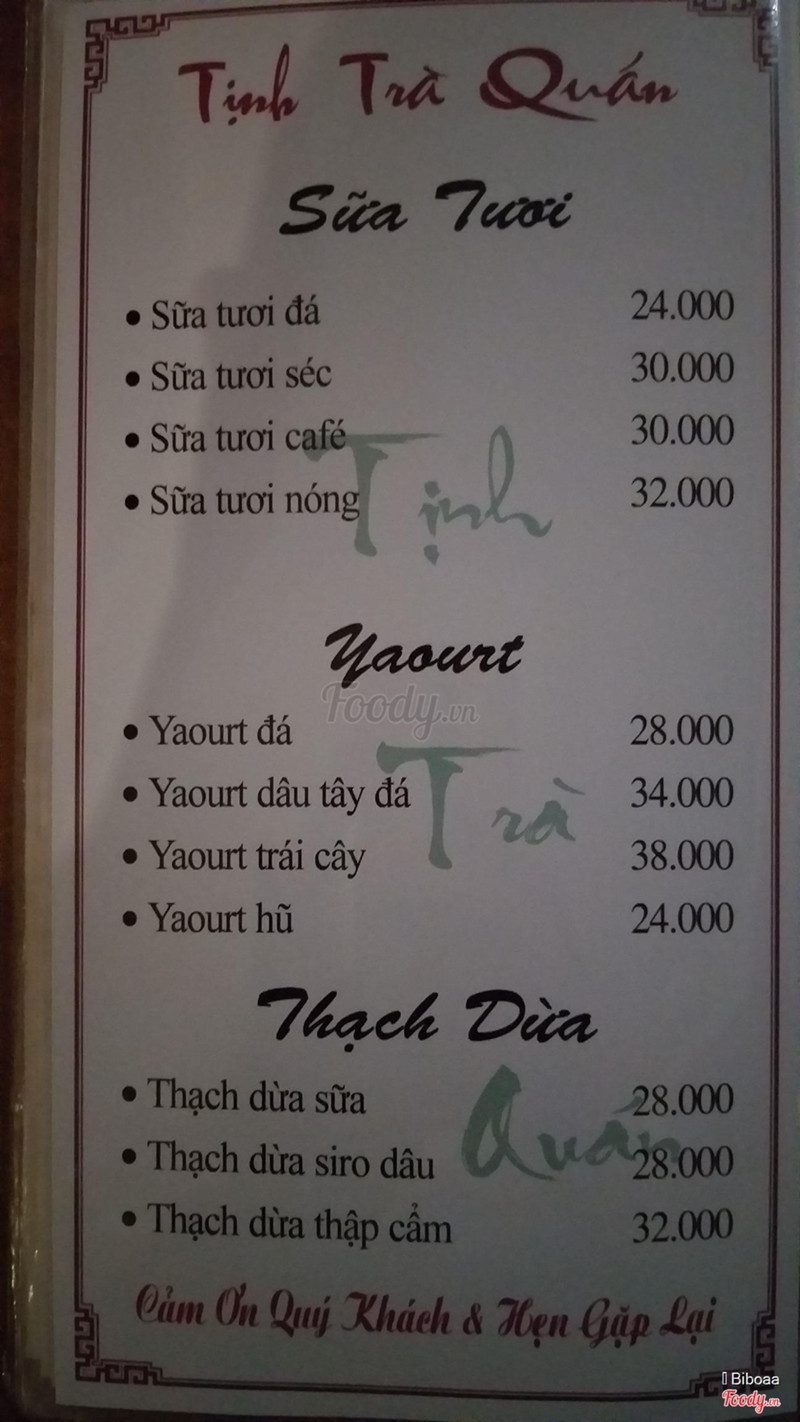 Tịnh Trà Quán
Sữa Tươi
• Sữa tươi đá 24.000
• Sữa tươi séc 30.000
• Sữa tươi café 30.000
• Sữa tươi nóng 32.000
Tịnh
Yaourt
Foody.vn
• Yaourt đá 28.000
• Yaourt dâu tây đá 34.000
Trà
• Yaourt trái cây 38.000
• Yaourt hũ 24.000
Thạch Dừa
• Thạch dừa sữa 28.000
Quán
• Thạch dừa siro dâu 28.000
• Thạch dừa thập cẩm 32.000
Cảm Ơn Quý Khách & Hẹn Gặp Lại
Biboaa
Foody.vn